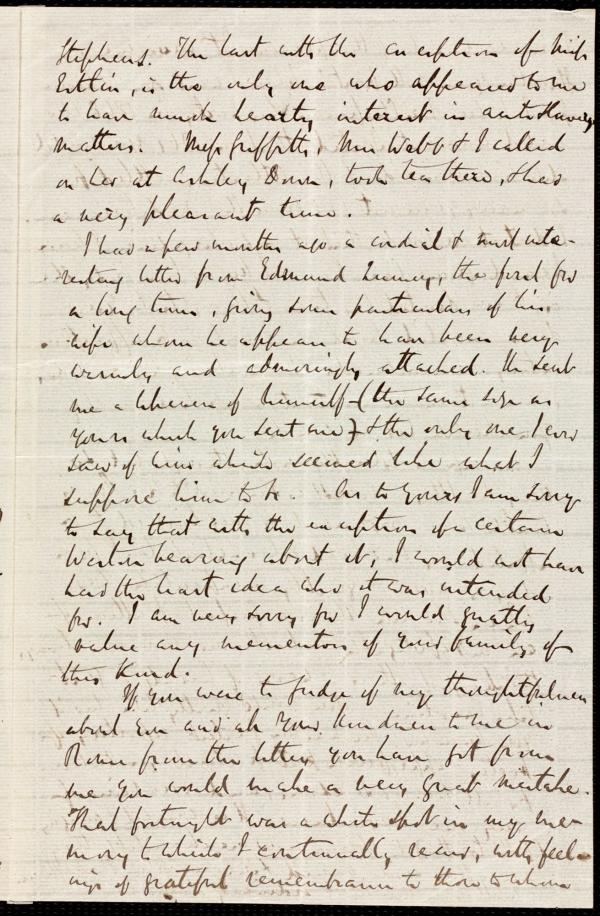 Stephens. The last with the exception of Miss
Estlin, is the only one who appeared to me
to have much hearty interest in anti Slavery
matters. Miss Griffith, Mrs Webb & I called
on her at Ashley Down, took tea there, & had
a very pleasant time.
I had a few months ago a cordial & most inte-
resting letter from Edmund Quincy, the first for
a long time, giving some particulars of his
wife whom he appears to have been very
warmly and admiringly attached. He sent
me a likeness of himself (the same size as
yours which you sent me) & the only one I ever
saw of him which seemed like what I
suppose him to be. As to yours I am sorry
to say that with the exception of a certain
Weston bearing about it, I would not have
had the least idea who it was intended
for. I am very sorry for I would greatly
value any mementos of your family of
this kind.
If you were to judge of my thoughtfulness
about you and all your kindness to me in
Rome from the letters you have got from
me you would make a very great mistake.
That fortnight was a white spot in my me-
mory to which I continually recur, with feel-
ings of grateful remembrance to those to whom